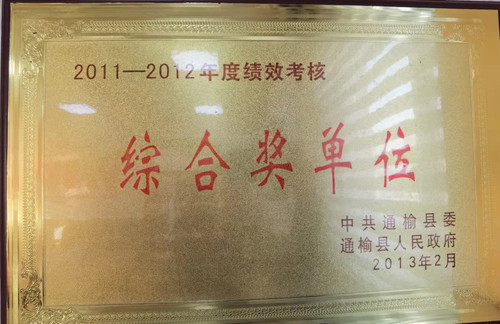 2011—2012年度绩效考核
综合奖单位
中共通榆县委
通榆县人民政府
2013年2月